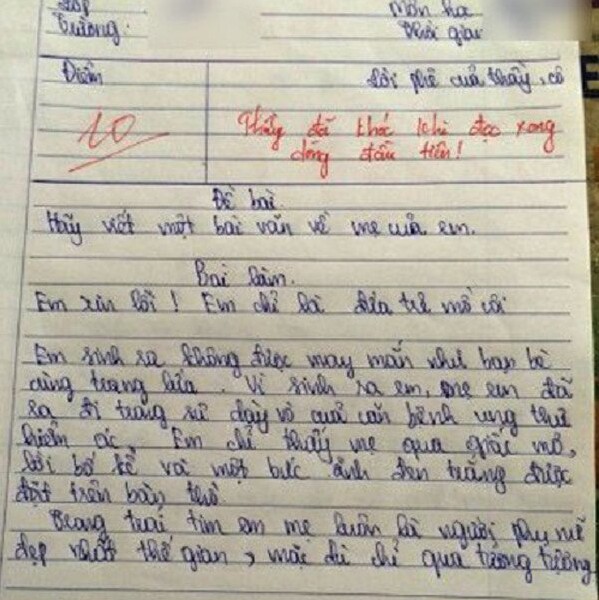 Lớp
Môn học
Trường:
Thời gian
Điểm
Lời phê của thầy, cô
10
Thầy đã khóc khi đọc xong
dòng đầu tiên!
Đề bài.
Hãy viết một bài văn về mẹ của em.
Bài làm.
Em xin lỗi! Em chỉ là đứa trẻ mồ côi
Em sinh ra không được may mắn như bạn bè
cùng trang lứa. Vì sinh ra em, mẹ em đã
ra đi trong sự dày vò của căn bệnh ung thư
hiểm ác, Em chỉ thấy mẹ qua giấc mơ,
lời bố kể và một bức ảnh đen trắng được
đặt trên bàn thờ.
Trong trái tim em mẹ luôn là người phụ nữ
đẹp nhất thế gian, mặc dù chỉ qua tưởng tượng